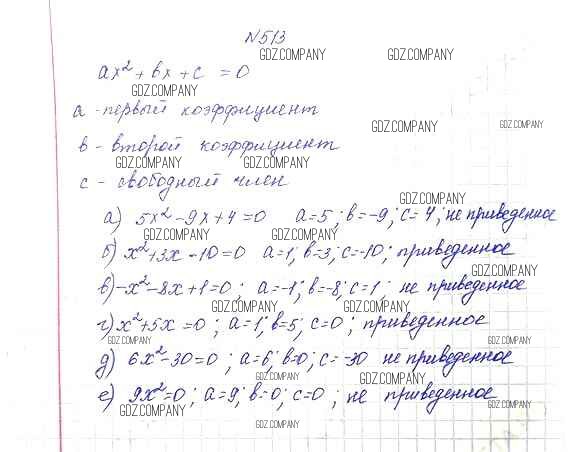 N513
GDZ.COMPANY GDZ.COMPANY
ax² + bx + c = 0
GDZ.COMPANY
a - первый коэффициент
GDZ.COMPANY GDZ.COMPANY
b - второй коэффициент
GDZ.COMPANY GDZ.COMPANY
c - свободный член
GDZ.COMPANY
а) 5x² - 9x + 4 = 0 a = 5; b = -9; c = 4; не приведенное
GDZ.COMPANY GDZ.COMPANY
б) x² + 3x - 10 = 0 a = 1; b = 3; c = -10; приведенное
GDZ.COMPANY
в) -x² - 8x + 1 = 0; a = -1; b = -8; c = 1; не приведенное
GDZ.COMPANY GDZ.COMPANY GDZ.COMPANY
г) x² + 5x = 0; a = 1; b = 5; c = 0; приведенное
GDZ.COMPANY GDZ.COMPANY GDZ.COMPANY
д) 6x² - 30 = 0; a = 6; b = 0; c = -30 не приведенное
GDZ.COMPANY GDZ.COMPANY
е) 9x² = 0; a = 9; b = 0; c = 0; не приведенное
GDZ.COMPANY GDZ.COMPANY
GDZ.COMPANY